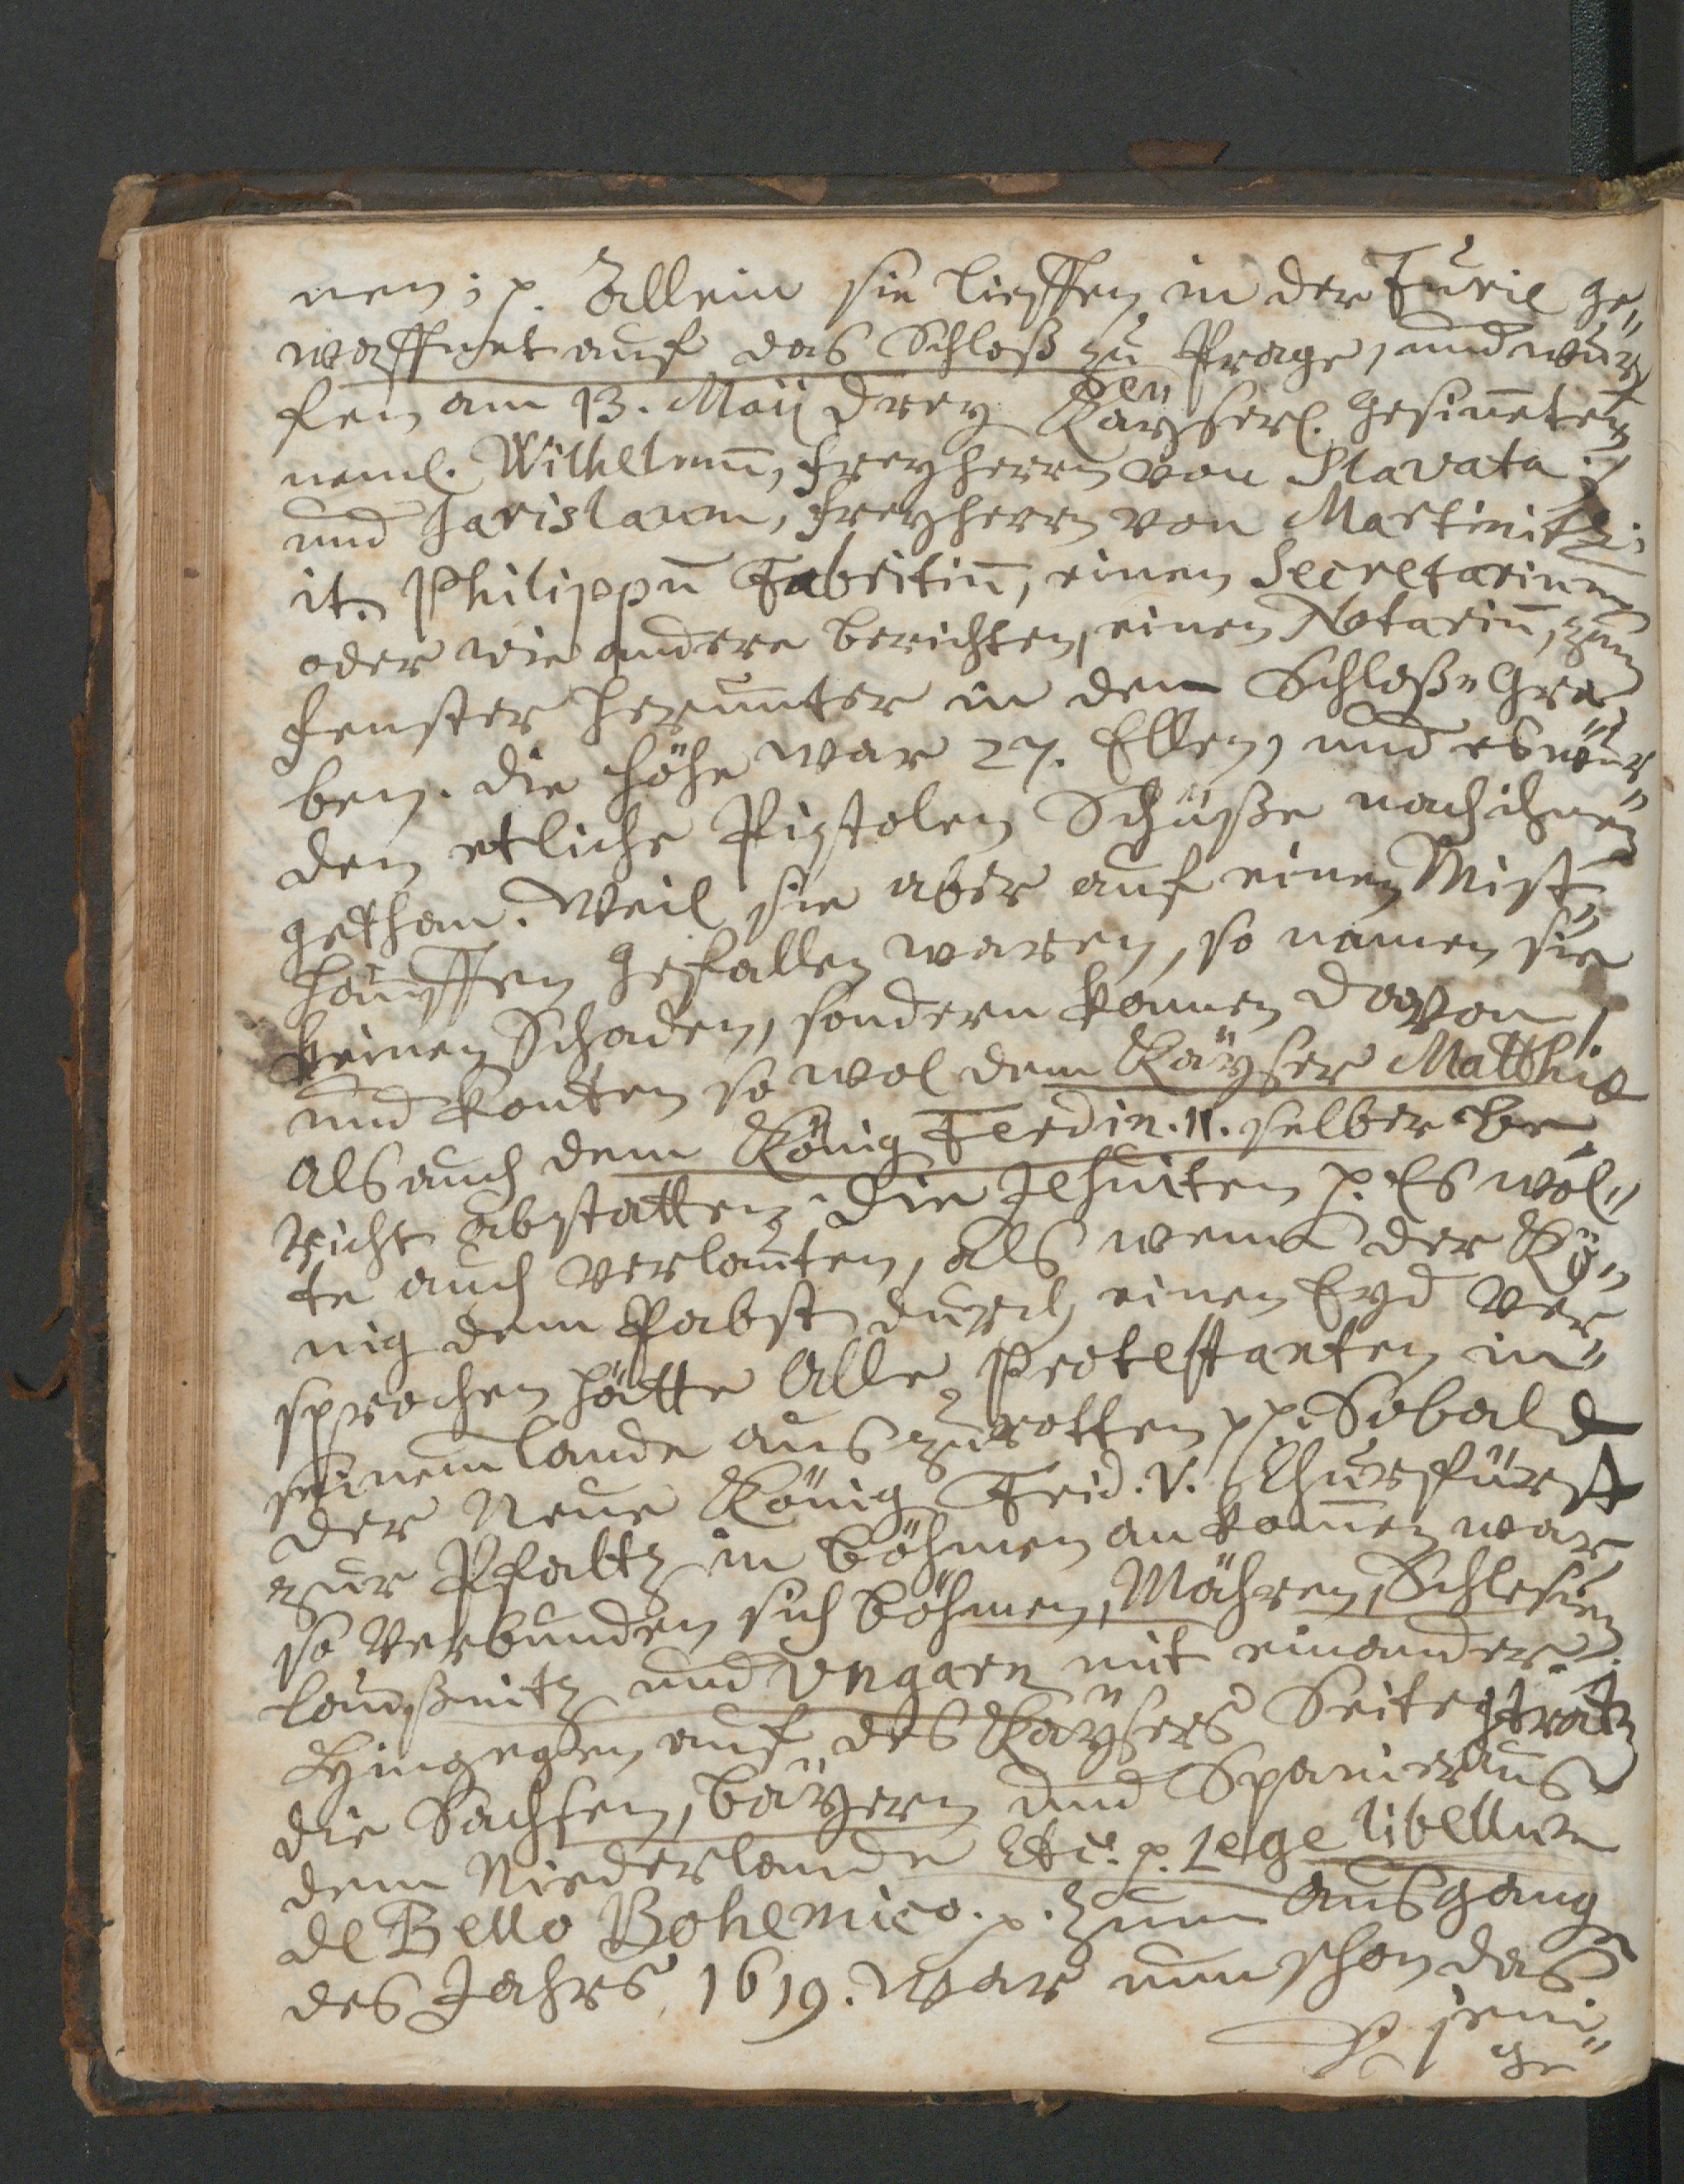 nen; p. Allein sie lieffen in der Furie ge„
waffnet auf das Schloß zu Prage, und wur„
fen am 13. Maij drey Käyserl. Gesinneten
neml. Wilhelmum, Freyherrn von Slavata;
und Jarislaum, Freyherrn von Martinitz;
it. Philippum Fabritium, einen Secretarium
oder wie andere berichten, einen Notarium, zum
Fenster herunter in den Schloß-Gra„
ben. Die Höhe war 27. Ellen, und es wur„
den etliche Pistolen Schüße nach ihnen
gethan. Weil sie aber auf einen Mist„
hauffen gefallen waren, so namen sie
keinen Schaden, sondern kamen davon,
und konten so wol dem Käyser Matthia
als auch dem König Ferdin. II. selber be„
richt abstatten. Die Jesuiten p. Es wol„
te auch verlauten, als wenn der Kö„
nig dem Pabst durch einen Eyd ver„
sprochen hätte alle Protestanten in
seinem Lande auszurotten pp. Sobald
der Neue König Frid. V. Churfürst
zur Pfaltz in Böhmen ankommen war
so verbunden sich Böhmen, Mähren, Schlesien
Laußnitz und Ungarn mit einander.
Hingegen auf des Käysers Seite traten
die Sachsen, Bäyern und Spanier aus
dem Niederlande etc. p. Lege libellum
de Bello Bohemico. p. Zum Ausgang
des Jahrs 1619. war nun schon das
jeni„
ge